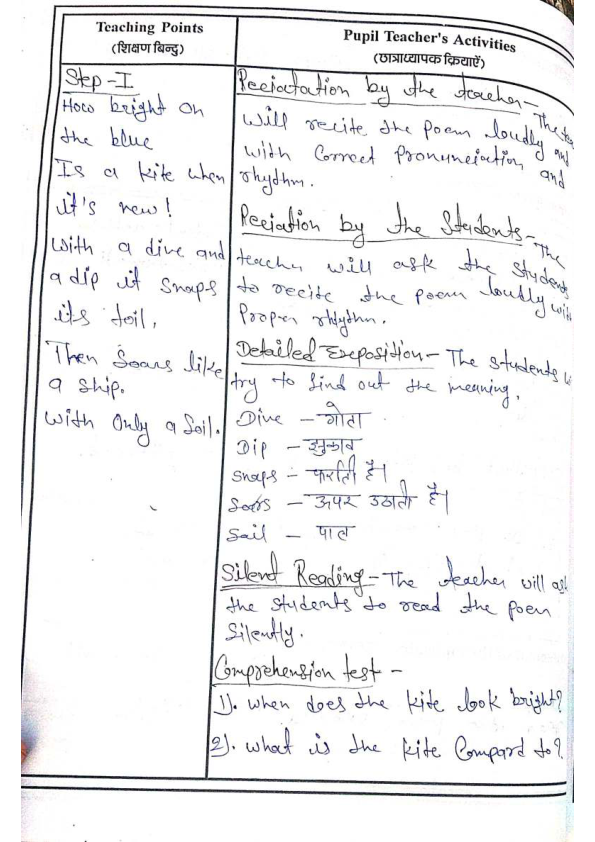 Teaching Points
(शिक्षण बिन्दु)
Step-I
How bright on
the blue
Is a kite when
it's new!
With a dive and
a dip it snaps
its toil,
Then Soars like
a ship.
With Only a Soil.
Pupil Teacher's Activities
(छात्राध्यापक क्रियाएँ)
Reciatation by the teacher- The
will recite the poem loudly and
with Correct Pronunciation and
rhythm.
Reciation by the Students- The
teacher will ask the students
to recite the poem loudly
Proper rhdythm.
Detailed Exposition- The students
try to find out the meaning.
Dive - गोता
Dip - झुकाव
snaps - फर्राती है।
Soars - ऊपर उठाती है।
Sail - पाल
Silent Reading- The teacher will
the students to read the poem
Silently.
Comprehension test -
1). when does the kite look bright?
2). what is the kite Compard to?